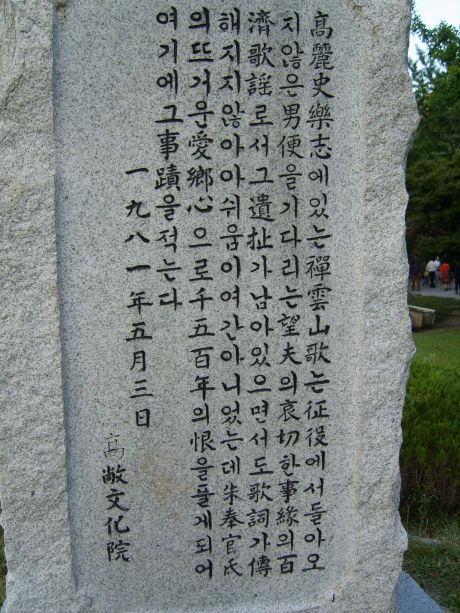 高麗史樂志에있는禪雲山歌는征役에서돌아오
지않은男便을기다리는望夫의哀切한事緣의百
濟歌謠로서그遺址가남아있으면서도歌詞가傳
해지지않아아쉬움이여간아니었는데朱奉官氏
의뜨거운愛鄕心으로千五百年의恨을풀게되어
여기에그事蹟을적는다
一九八一年五月三日
高敞文化院